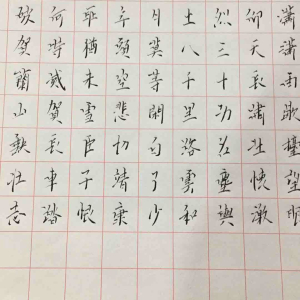 瀟瀟雨歇擡望眼
仰天長嘯壯懷激
烈三十功名塵與
土八千里路雲和
月莫等閑白了少
年頭空悲切靖康
耻猶未雪臣子恨
何時滅駕長車踏
破賀蘭山缺壯志